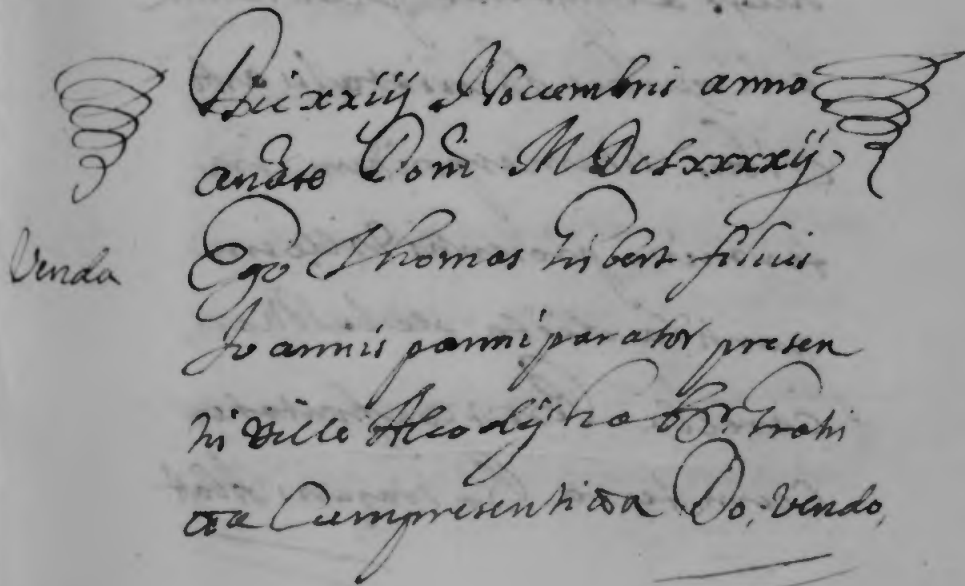 Die xxiij Nouembris anno
a nato Domi M Dclxxxxij
Venda
Ego Thomas Gisbert filius
Joannis panni parator presen
tis ville Alcodij hab.r Grati
cta Cum presenti cta Do, Vendo,